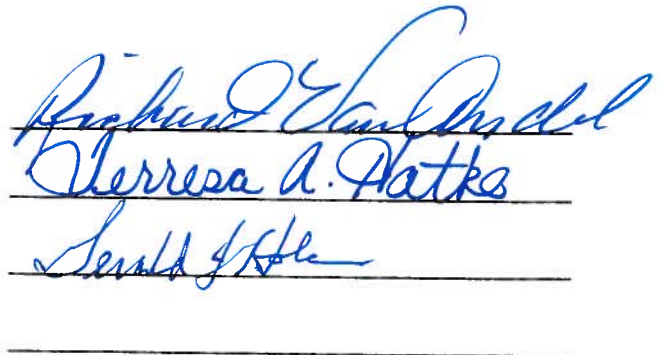 Richard VanAndel
Terresa A. Hatke
Gerald J